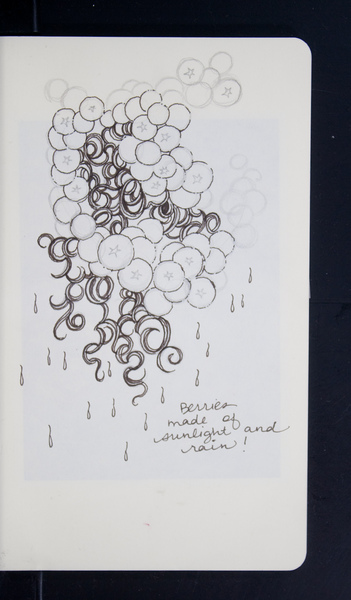 Berries
made of
sunlight and
rain!